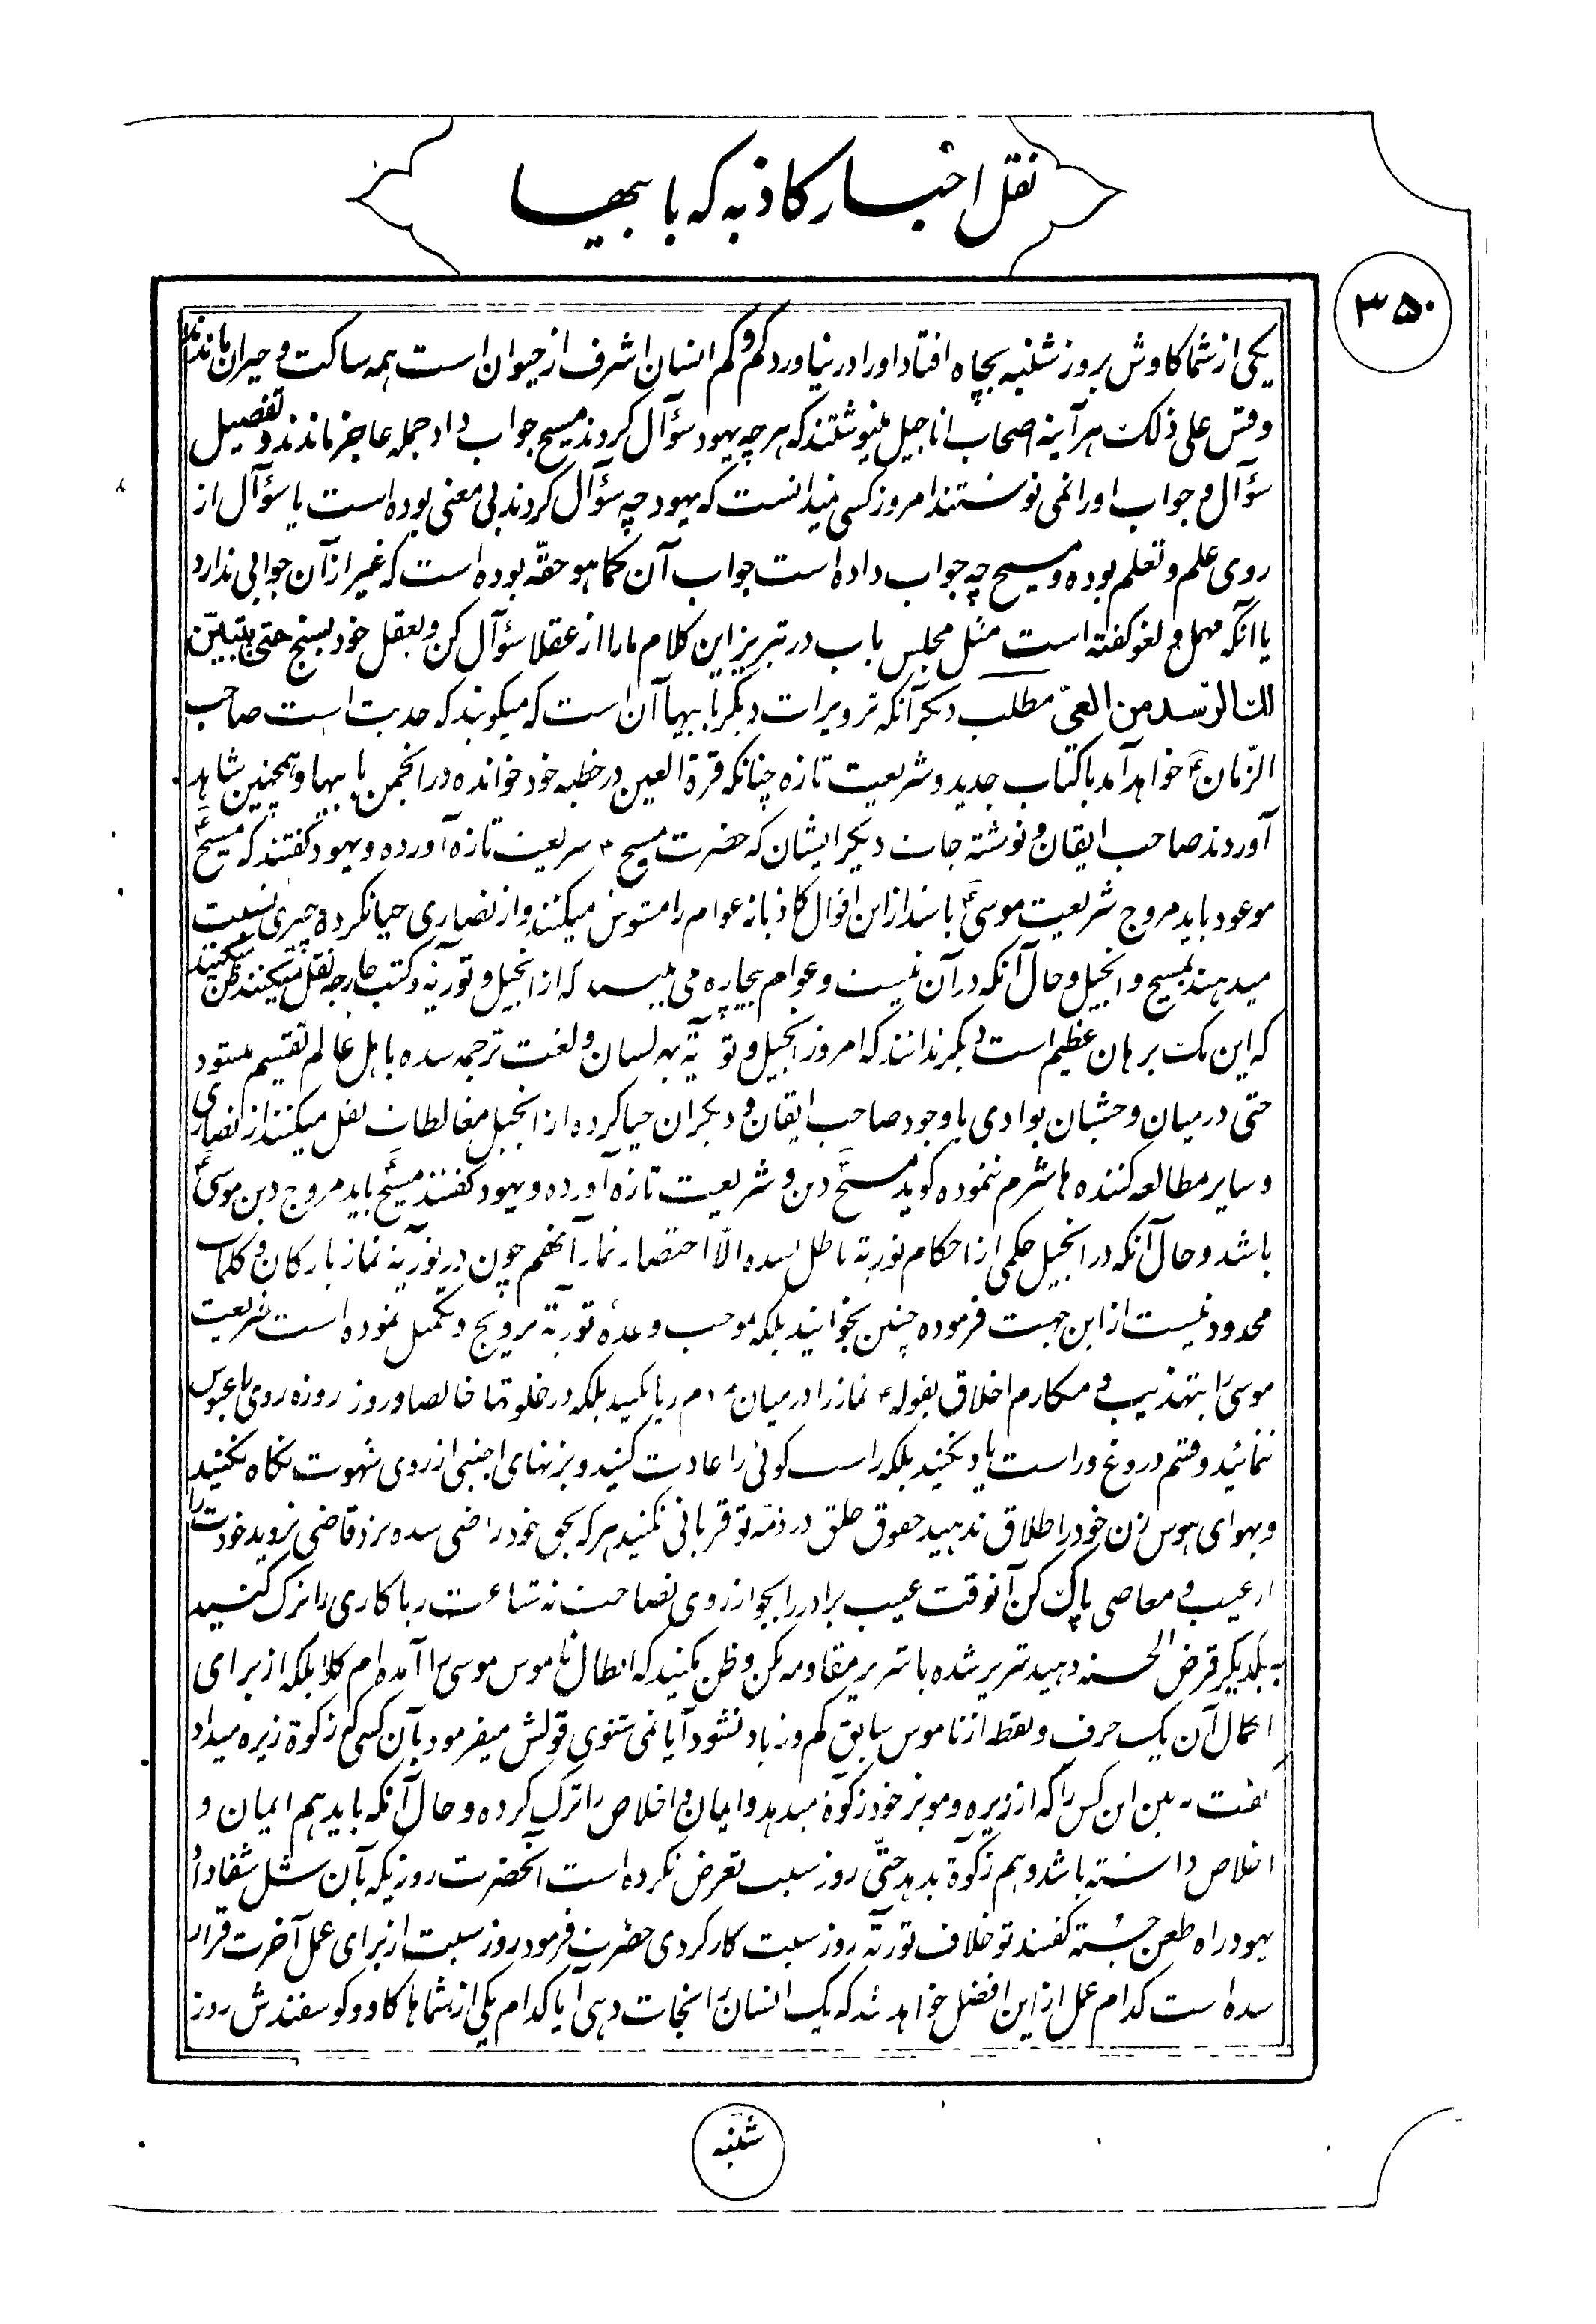 نقل اخبار کاذبه که بابیها
۳۵۰
یکی از شما کاوش بروز شنبه بچاه افتاد او را در نیاورد کم و کم انسان اشرف از حیوان است همه ساکت و حیران ماندند
وقس علی ذلک هر آینه اصحاب اناجیل مینوشتند که هر چه یهود سؤال کردند مسیح جواب داد جمله عاجز ماندند و تفصیل
سؤال و جواب او را نمی نوشتند امروز کسی میدانست که یهود چه سؤال کردند بی معنی بوده است یا سؤال از
روی علم و تعلم بوده و مسیح چه جواب داده است جواب آن کما هو حقّه بوده است که غیر از آن جوابی ندارد
یا آنکه مهمل و لغو کفته است مثل مجلس باب در تبریز این کلام ما را از عقلا سؤال کن و بعقل خود بسنج حتی یتبیّن
لك الرّشد من الغیّ مطلب دیکر آنکه تزویرات دیکر بابیها آن است که میکویند که حدیث است صاحب
الزّمان ع خواهد آمد با کتاب جدید و شریعت تازه چنانکه قرة العین در خطبه خود خوانده در انجمن بابیها و همچنین شاهد
آوردند صاحب ایقان و نوشته جات دیکر ایشان که حضرت مسیح ع شریعت تازه آورده و یهود کفتند که مسیح ع
موعود باید مروج شریعت موسی ع باشد از این اقوال کاذبانه عوام را مشوش میکنند و از نصاری حیا نکرده چیزی نسبت
میدهند بمسیح و انجیل و حال آنکه در آن نیست و عوام بیچاره می بیند که از انجیل و توریة و کتب خارجه نقل میکنند ظن میکنند
که این یک برهان عظیم است دیکر ندانند که امروز انجیل و توریة بهر لسان و لغت ترجمه شده باهل عالم تقسیم میشود
حتی در میان وحشیان بوادی با وجود صاحب ایقان و دیکران حیا کرده از انجیل مغالطات نقل میکنند از نصاری
و سایر مطالعه کننده ها شرم ننموده کوید مسیح ع دین و شریعت تازه آورده و یهود کفتند مسیح ع باید مروج دین موسی ع
باشد و حال آنکه در انجیل حکمی از احکام توریة باطل نشده الّا اختصار نماز آنهم چون در توریة نماز بارکان و کلمات
محدود نیست از این جهت فرموده چنین بخوانید بلکه موجب وعدهٔ توریة ترویج و تکمیل نموده است شریعت
موسی را بتهذیب و مکارم اخلاق بقوله ع نماز را در میان مردم ریا مکنید بلکه در خلوتها خالصا و روز روزه روی را عبوس
ننمائید و قسم دروغ و راست یاد نکنید بلکه راست کوئی را عادت کنید و بزنهای اجنبی از روی شهوت نکاه نکنید
و بهوای هوس زن خود را طلاق ندهید حقوق خلق در ذمّه تو قربانی نکنید هر که بحق خود راضی شده نزد قاضی نروید خودت را
از عیب و معاصی پاک کن آنوقت عیب برادر را بجو از روی نصاحت نه شناعت ریا کاری را ترک کنید
بیکدیکر قرض الحسنه دهید شریر شده با شریر مقاومه مکن و ظن مکنید که ابطال ناموس موسی را آمده ام کلا بلکه از برای
اکمال آن یک حرف و نقطه از ناموس سابق کم و زیاد نشود آیا نمی شنوی قولش میفرمود بآن کسی که زکوة زیره میداد
کفت ببین این کس را که از زیره و مویز خود زکوة میدهد و ایمان و اخلاص را ترک کرده و حال آنکه باید هم ایمان و
اخلاص داشته باشد و هم زکوة بدهد حتّی روز سبت تعرض نکرده است آنحضرت روزیکه بآن شل شفا داد
یهود راه طعن جسته کفتند تو خلاف توریة روز سبت کار کردی حضرت فرمود روز سبت از برای عمل آخرت قرار
شده است کدام عمل از این افضل خواهد شد که یک انسان را نجات دهی آیا کدام یکی از شماها کاو و کوسفندش روز
شنبه